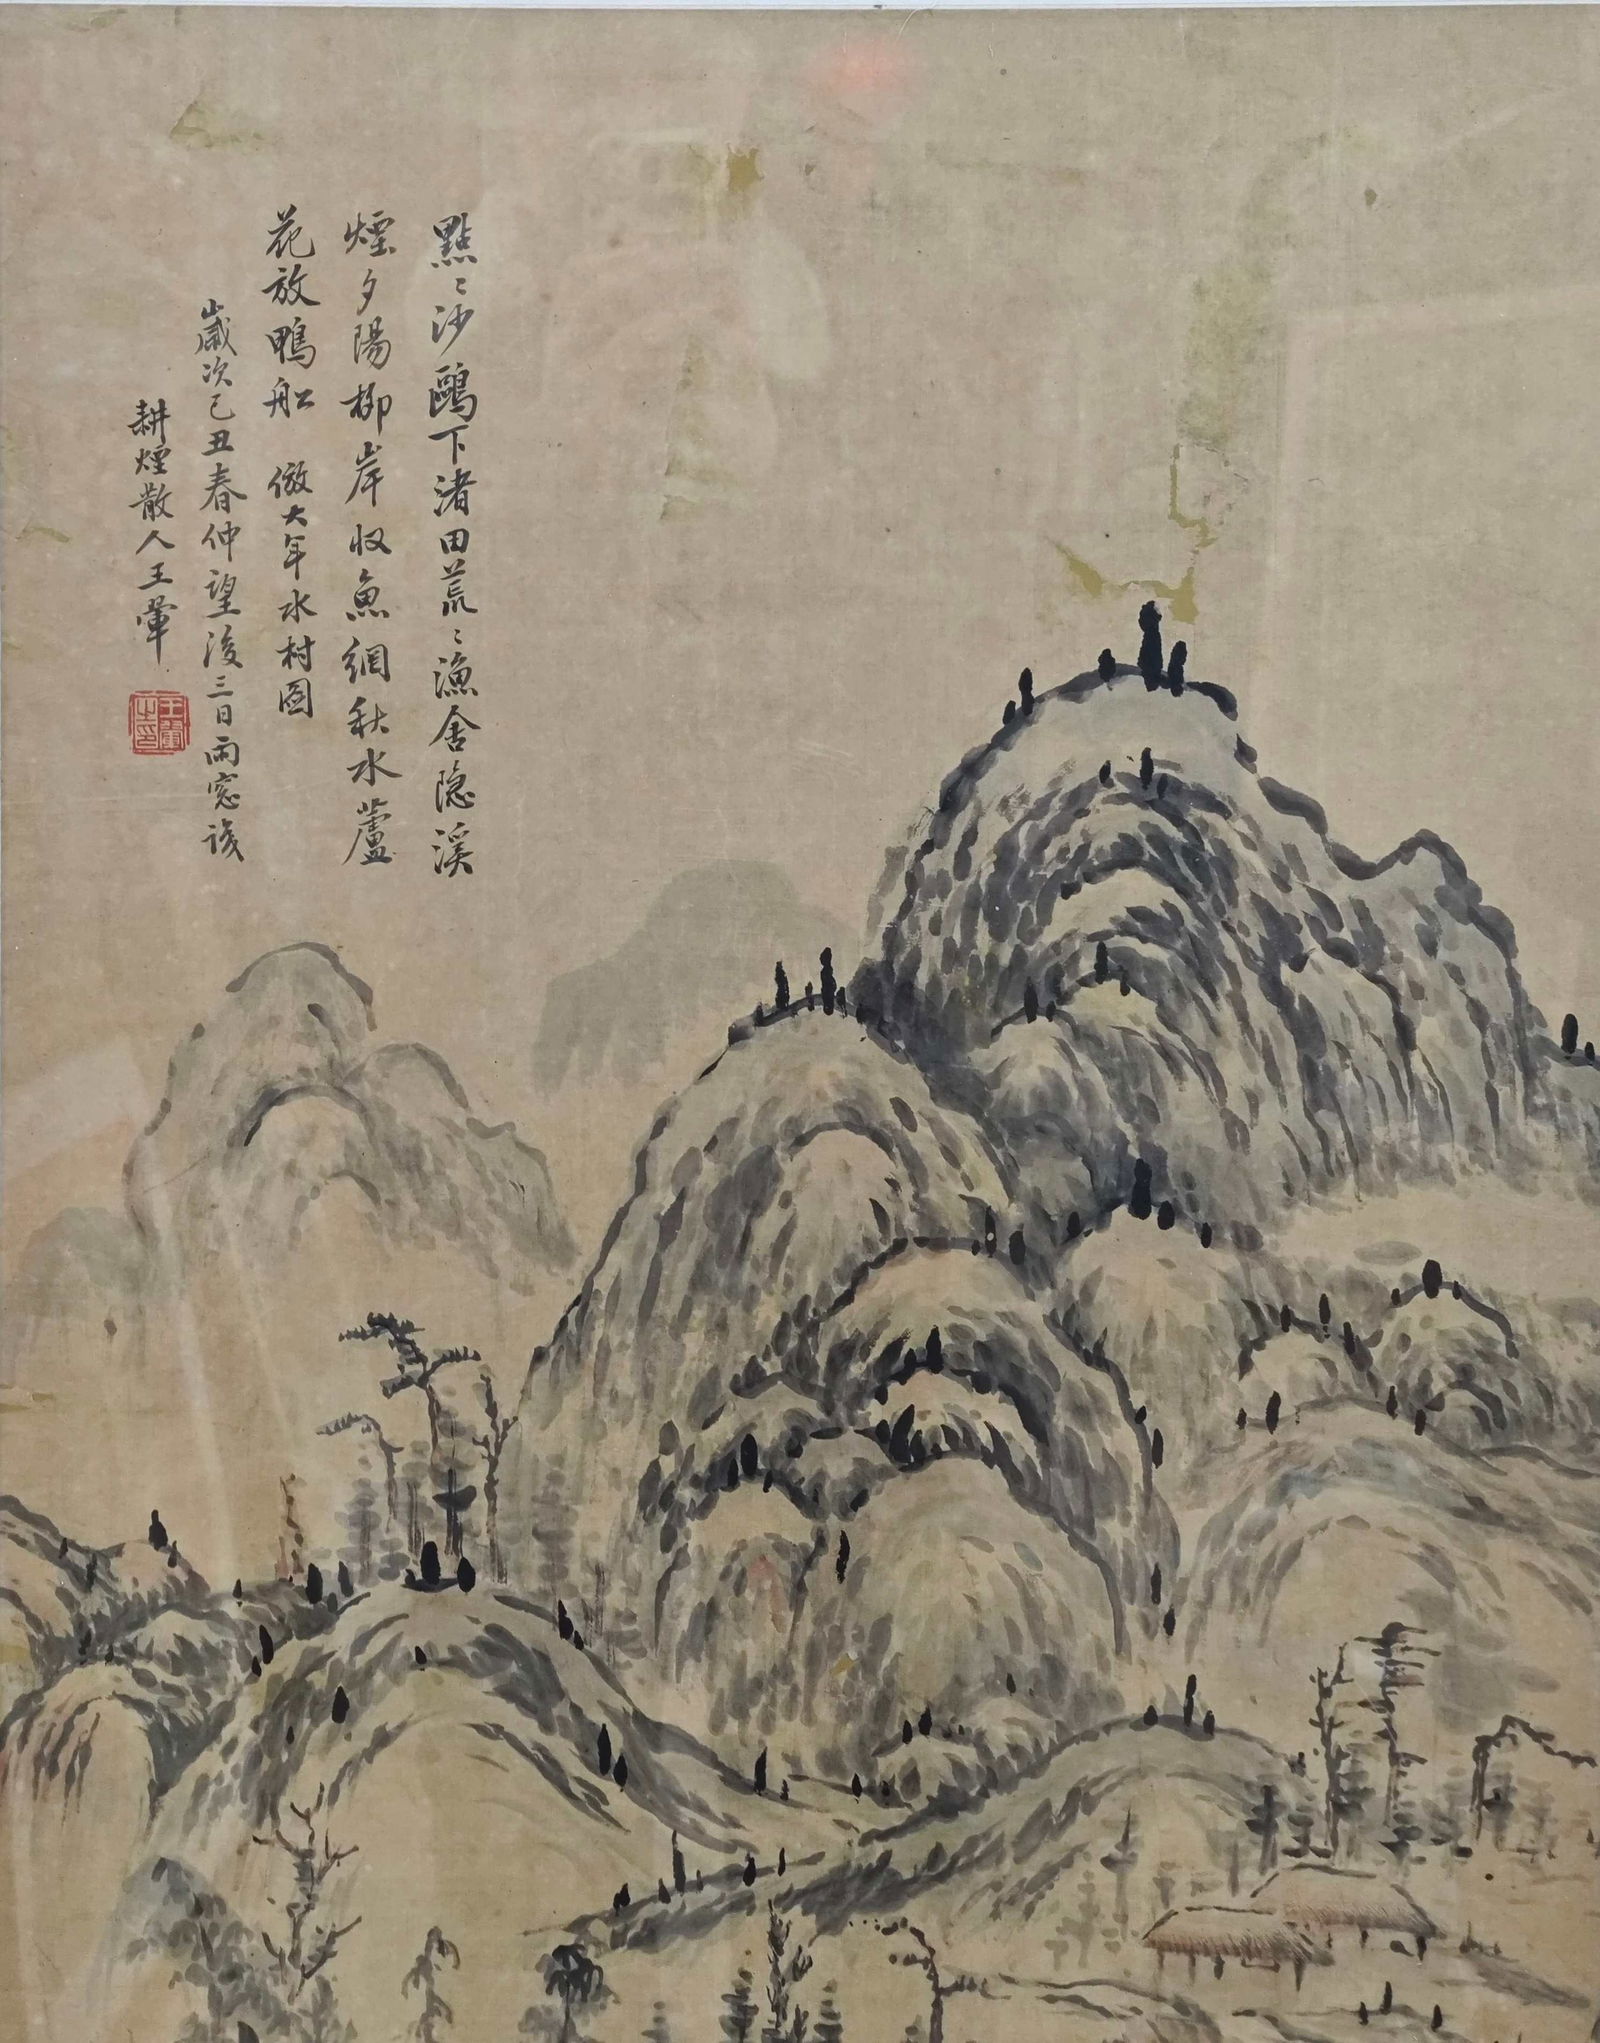 點〻沙鷗下渚田荒〻漁舍隐溪
煙夕陽柳岸收魚網秋水蘆
花放鴨船 倣大年水村圖
歲次己丑春仲望後三日雨窓識
耕煙散人王翬
王翬之印